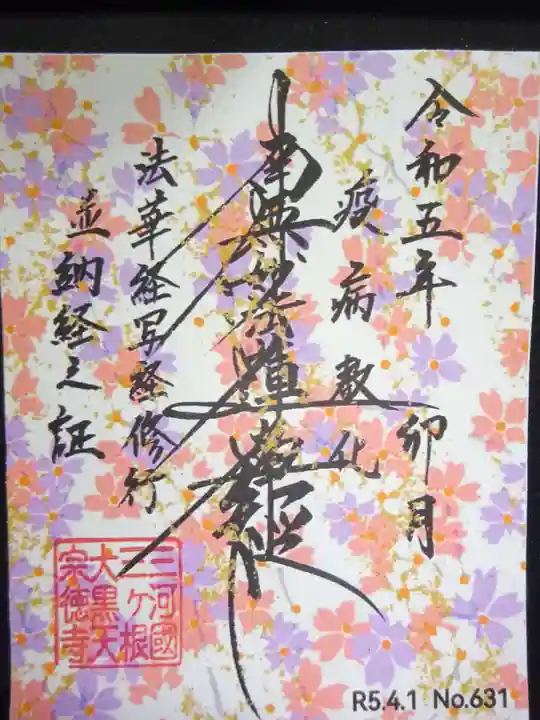 令和五年卯月
疫病教化
南無妙法蓮華経
法華経写経修行
並納経之証
三河國
三ヶ根
大黒天
宗徳寺
R5.4.1 No.631